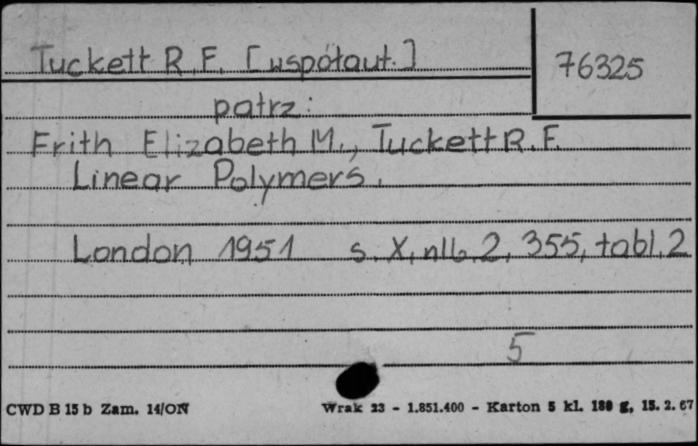 Tuckett R.F. [współaut.] 76325
patrz:
Frith Elizabeth M., Tuckett R.F.
Linear Polymers.
London 1951 s. X, nlb. 2, 355, tabl. 2
5
CWD B 15 b Zam. 14/ON Wrak 23 - 1.851.400 - Karton 5 kl. 180 g, 15. 2. 67